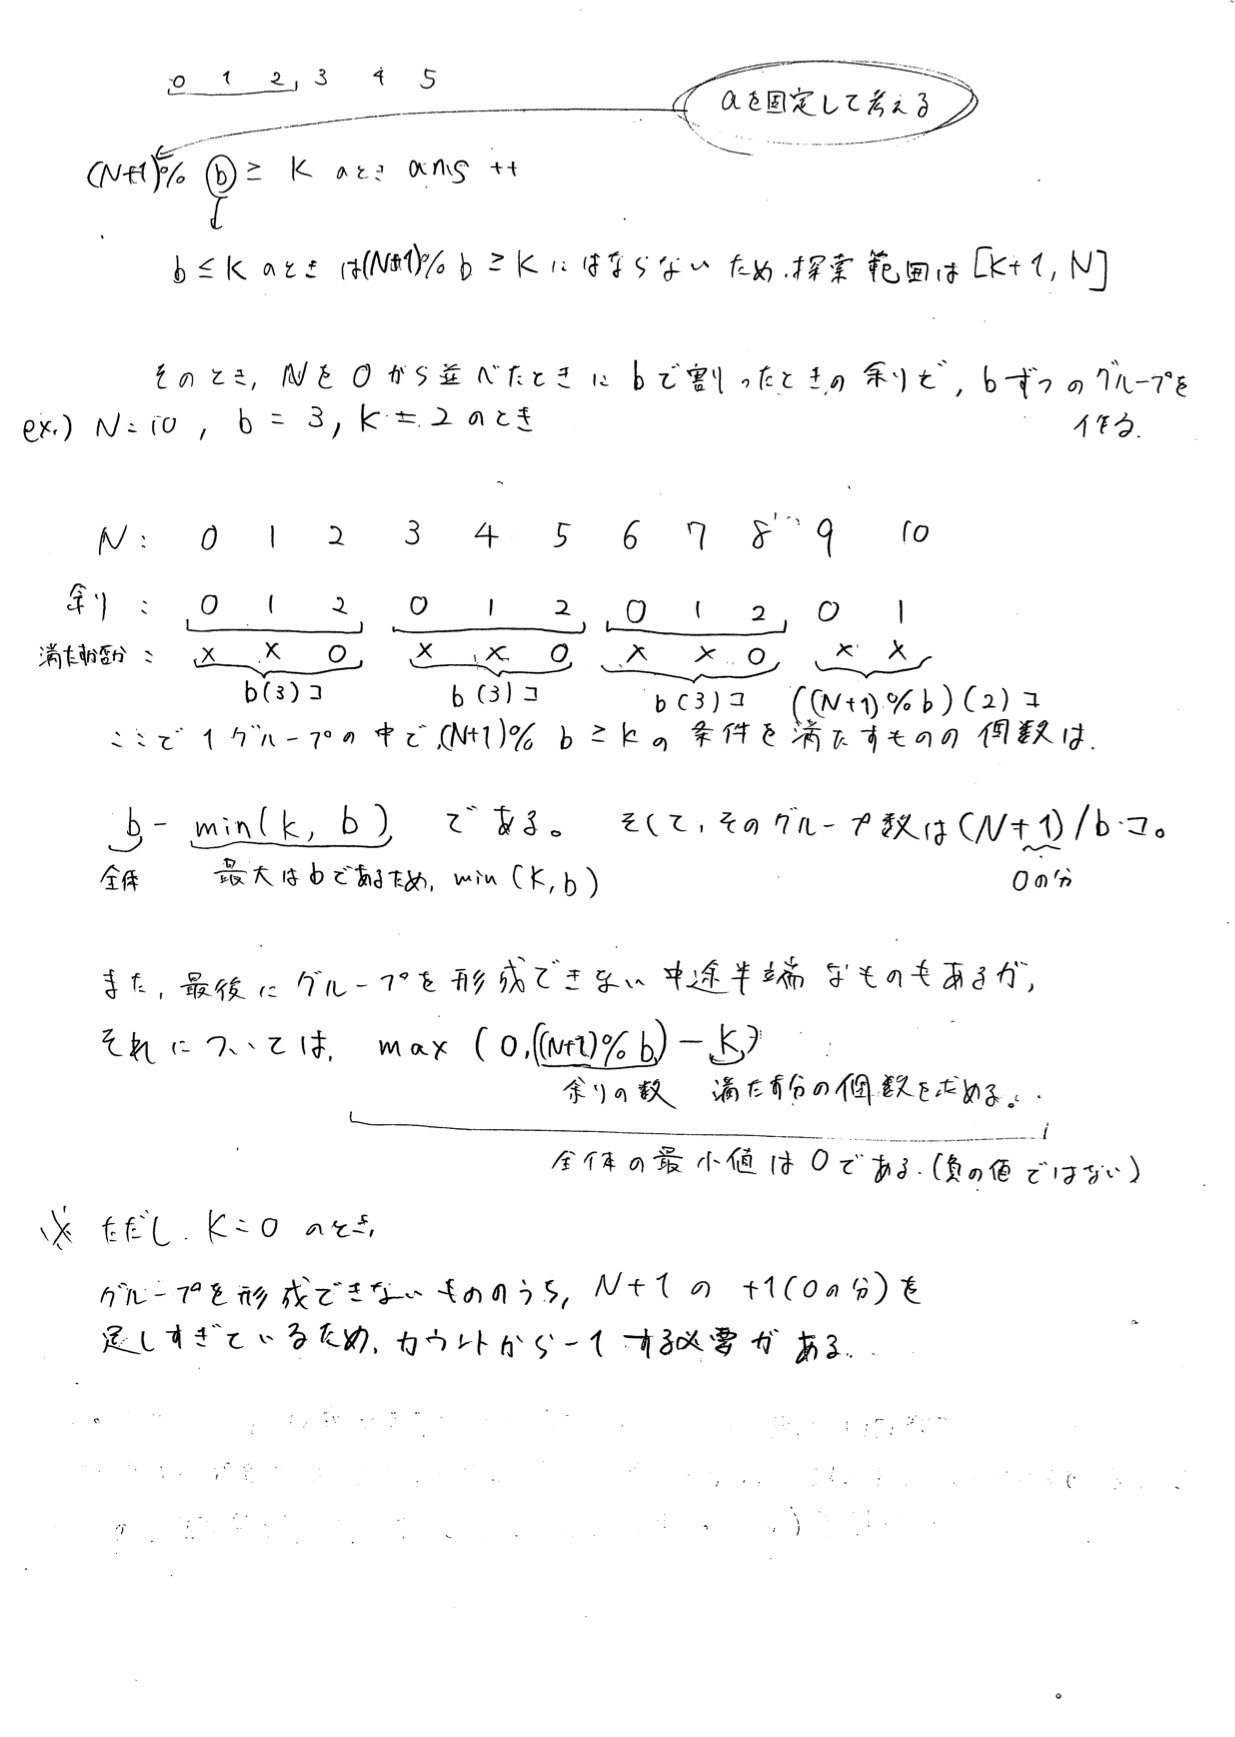 0 1 2, 3 4 5
aを固定して考える
(N+1)% b ≥ K のとき ans ++
b ≤ K のときは(N+1)% b ≥ K にはならないため、探索範囲は [K+1, N]
そのとき, Nを0から並べたときにbで割ったときの余りで, bずつのグループを
作る.
ex.) N=10, b = 3, K = 2 のとき
N: 0 1 2 3 4 5 6 7 8 9 10
余り: 0 1 2 0 1 2 0 1 2, 0 1
満たすか否か: × × 0 × × 0 × × 0 × ×
b(3)コ b(3)コ b(3)コ ((N+1)%b)(2)コ
ここで1グループの中で,(N+1)% b ≥ Kの条件を満たすものの個数は.
b - min(k, b), である。 そして, そのグループ数は(N+1)/bコ。
全体 最大はbであるため, min(K,b) 0の分
また, 最後にグループを形成できない中途半端なものもあるが,
それについては, max (0,((N+1)%b) - K)
余りの数 満たす分の個数を求める。
全体の最小値は0である.(負の値ではない)
※ ただし. K=0 のとき,
グループを形成できないもののうち, N+1の +1(0の分)を
足しすぎているため, カウントから-1する必要がある.